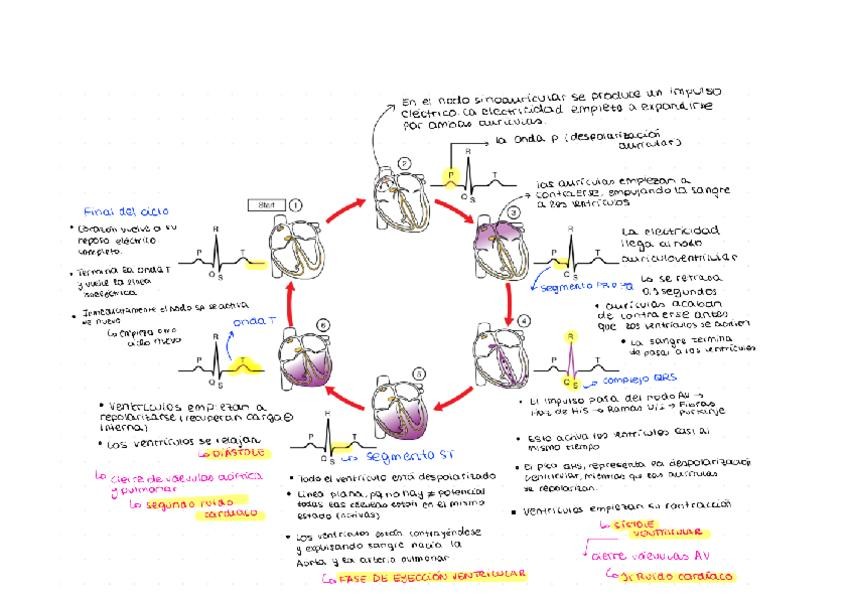 En el nodo sinoauricular se produce un impulso
eléctrico. La electricidad empieza a expandirse
por ambas aurículas.
la onda P (despolarización
auricular)
2
R
P
T
Q
S
las aurículas empiezan a
contraerse, empujando la sangre
a los ventrículos
3
R
P
T
Q S
segmento PR
La electricidad
llega al nodo
auriculoventricular
se retrasa
0.1 segundos
• aurículas acaban
de contraerse antes
que los ventrículos se activen
• La sangre termina
de pasar a los ventrículos
4
R
P
T
Q S
complejo QRS
• El impulso pasa del nodo AV →
Haz de His → Ramas → Fibras
Purkinje
• Esto activa los ventrículos casi al
mismo tiempo
• El pico QRS, representa la despolarización
ventricular, mientras que las aurículas
se repolarizan.
• Ventrículos empiezan su contracción
SÍSTOLE
VENTRICULAR
cierre válvulas AV
Ruido cardíaco
5
R
P
T
Q S
segmento ST
• Todo el ventrículo está despolarizado
• Línea plana, pq no hay ≠ potencial
todas las células están en el mismo
estado (activas)
• Los ventrículos están contrayéndose
y expulsando sangre hacia la
Aorta y la arteria pulmonar
FASE DE EYECCIÓN VENTRICULAR
6
onda T
R
P
T
Q S
• Ventrículos empiezan a
repolarizarse (recuperan carga ⊖
interna)
• Los ventrículos se relajan
DIÁSTOLE
cierre de válvulas aórtica
y pulmonar
segundo ruido
cardíaco
Start
1
Final del ciclo
• Corazón vuelve a su
reposo eléctrico
completo.
• Termina la onda T
y vuelve la línea
isoeléctrica.
• Inmediatamente el nodo se activa
de nuevo
empieza otro
ciclo nuevo
R
P
T
Q S